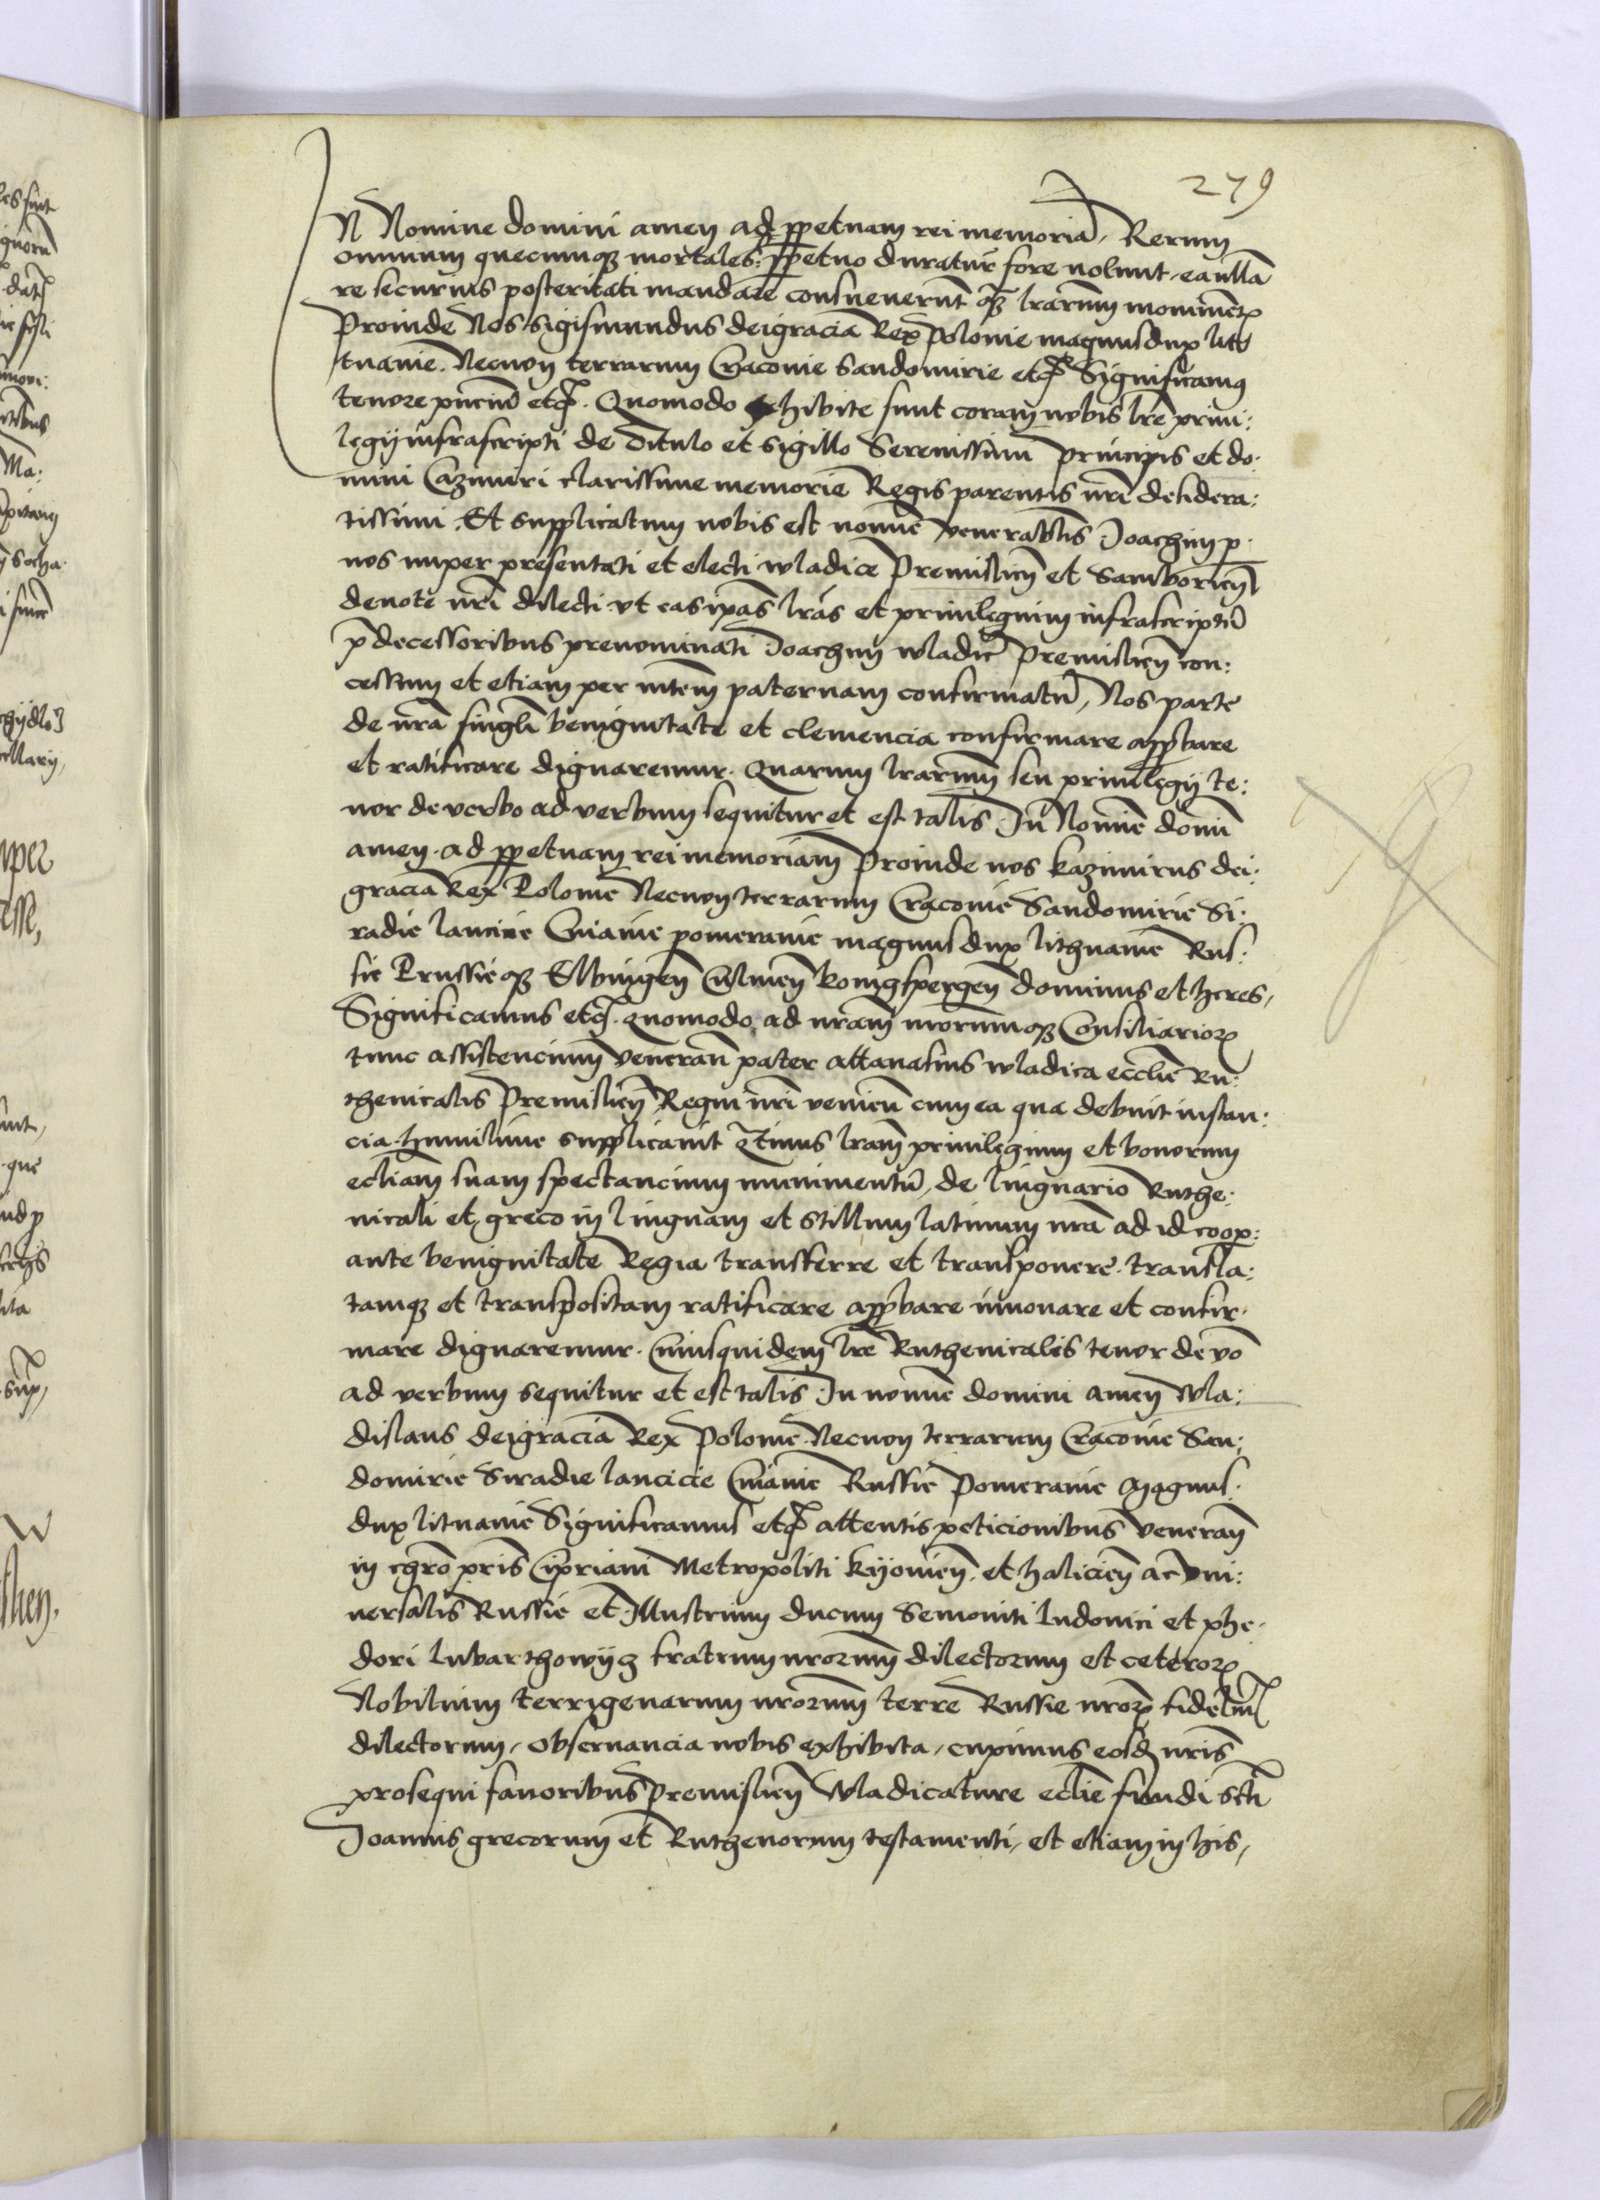 279
In Nomine domini amen ad ppetuam rei memoriã, Rerum
omnium quecumqȝ mortales ppetuo duratur̃ fore volunt, ea ulla
re securius posteritati mandare consueverũt q̃ȝ lrarum monimẽt
Proinde Nos Sigismundus dei gracia Rex Polonie magnus dux litt
tuanie. Necnon terrarum Cracovie Sandomirie etc̃ Significamus
tenore pñciũ etc̃. Quomodo exhibite sunt coram nobis lre privi:
legij infrascripti de Titulo et sigillo Serenissimi principis et do:
mini Cazimiri clarissime memorie Regis parentis nr̃i desidera:
tissimi. Et supplicatum nobis est nomĩe venerabilis Joachim p:
nos nuper presentati et electi wladice Premislien̄ et Samboricen̄
devote nr̃i dilecti ut eas ip̃as lrãs et privilegium infrascriptũ
p̄decessoribus prenominati Joachim wladice Premislien̄ con:
cessum et etiam per mtem̃ paternam confirmatũ, Nos parte
de nr̃a singl̃i benignitate et clemencia confirmare appbare
et ratificare dignaremur. Quarum lrarum seu privilegij te:
nor de verbo ad verbum sequitur et est talis. In Nomine domĩ
amen. ad ppetuam rei memoriam Proinde nos Kazimirus dei:
gracia Rex Polonie Necnon terrarum Cracovie Sandomirie Si:
radie lancicie Cuiavie pomeranie magnus dux lithuanie Rus:
sie Prussieqȝ Elbingen̄ Culmen̄ konigspergen̄ dominus et heres,
Significamus etc̃. quomodo ad nram nrorumqȝ Consiliarior̃
tunc assistencium veneran̄ pater attanasius wladica ecclie Ru:
thenicalis Premislien̄ Regni nr̃i veniens cum ea qua debuit instan:
cia humilime supplicavit q̃tinus lram̃ privilegium et bonorum
ecliam suam spectancium munimentũ, de linguario Ruthe:
nicali et greco in linguam et stillum latinum nr̃a ad id coop:
ante benignitate Regia transferre et transponere. transla:
tamqȝ et transpositam ratificare appbare innovare et confir:
mare dignaremur. Cuiusquidem lre Ruthenicalis tenor de vo
ad verbum sequitur et est talis. In nomine domini amen Wla:
dislaus dei gracia Rex Polonie Necnon terrarum Cracovie San:
domirie Siradie lancicie Cuiavie Russie Pomeranie Magnus:
dux litvanie Significamus etc̃ attentis peticionibus veneran̄
in chr̃o pr̃is Cipriani Metropoliti kijovien̄ et halicien̄ ac uni:
versalis Russie et Illustrium ducum Semoviti ludovici et phe:
dori lubarthowijcz fratrum nrorum dilectorum et ceteror̃
Nobilium terrigenarum nrorum terre Russie nror̃ fidelium
dilectorum, observancia nobis exhibita, cupimus eosd̃ nris
prosequi favoribus Premislien̄ Wladicature eclie fundi sc̃ti
Joannis grecorum et Ruthenorum testamenti, et etiam in his,